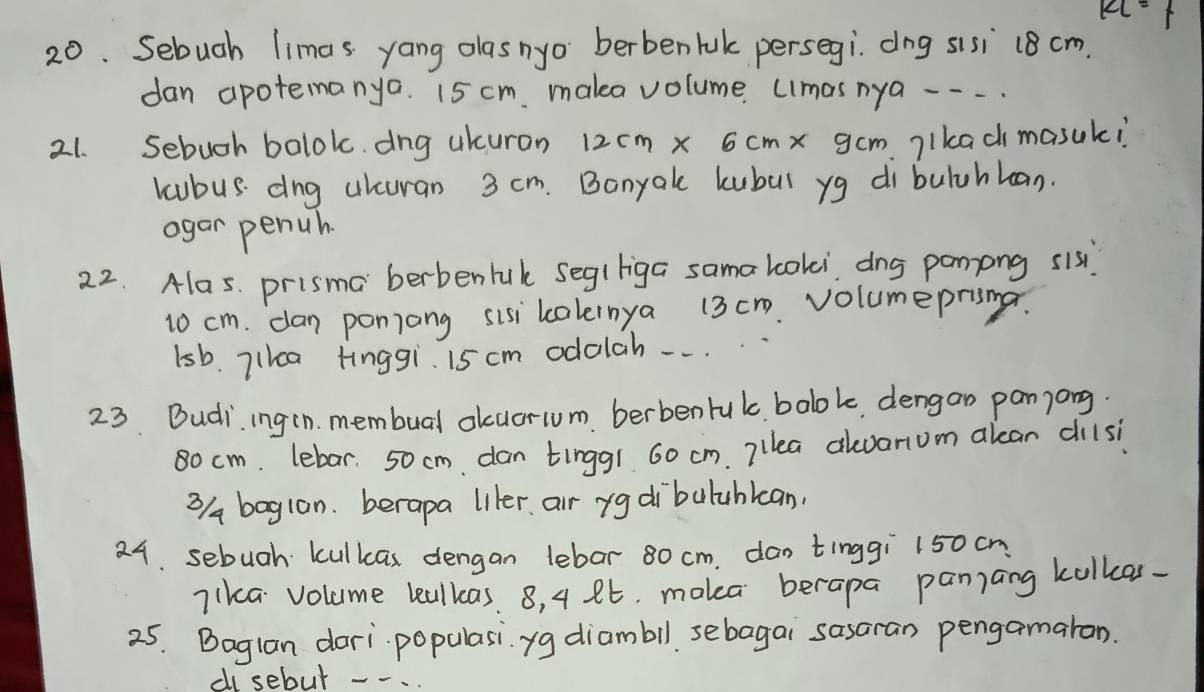 20. Sebuah limas yang alasnya berbentuk persegi. dng sisi 18 cm.
dan apotemanya. 15 cm. maka volume limasnya ----.
21. Sebuah balok. dng ukuran 12 cm x 6 cm x 9 cm jika di masuki
kubus dng ukuran 3 cm. Banyak kubus yg di butuhkan.
agar penuh.
22. Alas. prisma berbentuk segitiga sama kaki. dng panjang sisi
10 cm. dan panjang sisi kakinya 13 cm. volume prisma.
tsb. jika tinggi. 15 cm adalah ---.
23. Budi. ingin. membuat akuarium. berbentuk balok. dengan panjang.
80 cm. lebar. 50 cm. dan tinggi 60 cm. jika akuarium akan diisi
3/4 bagian. berapa liter. air yg di butuhkan.
24. sebuah kulkas dengan lebar 80 cm. dan tinggi 150 cm
jika volume kulkas. 8,4 lt. maka berapa panjang kulkas-
25. Bagian dari populasi. yg diambil. sebagai sasaran pengamatan.
di sebut ----.